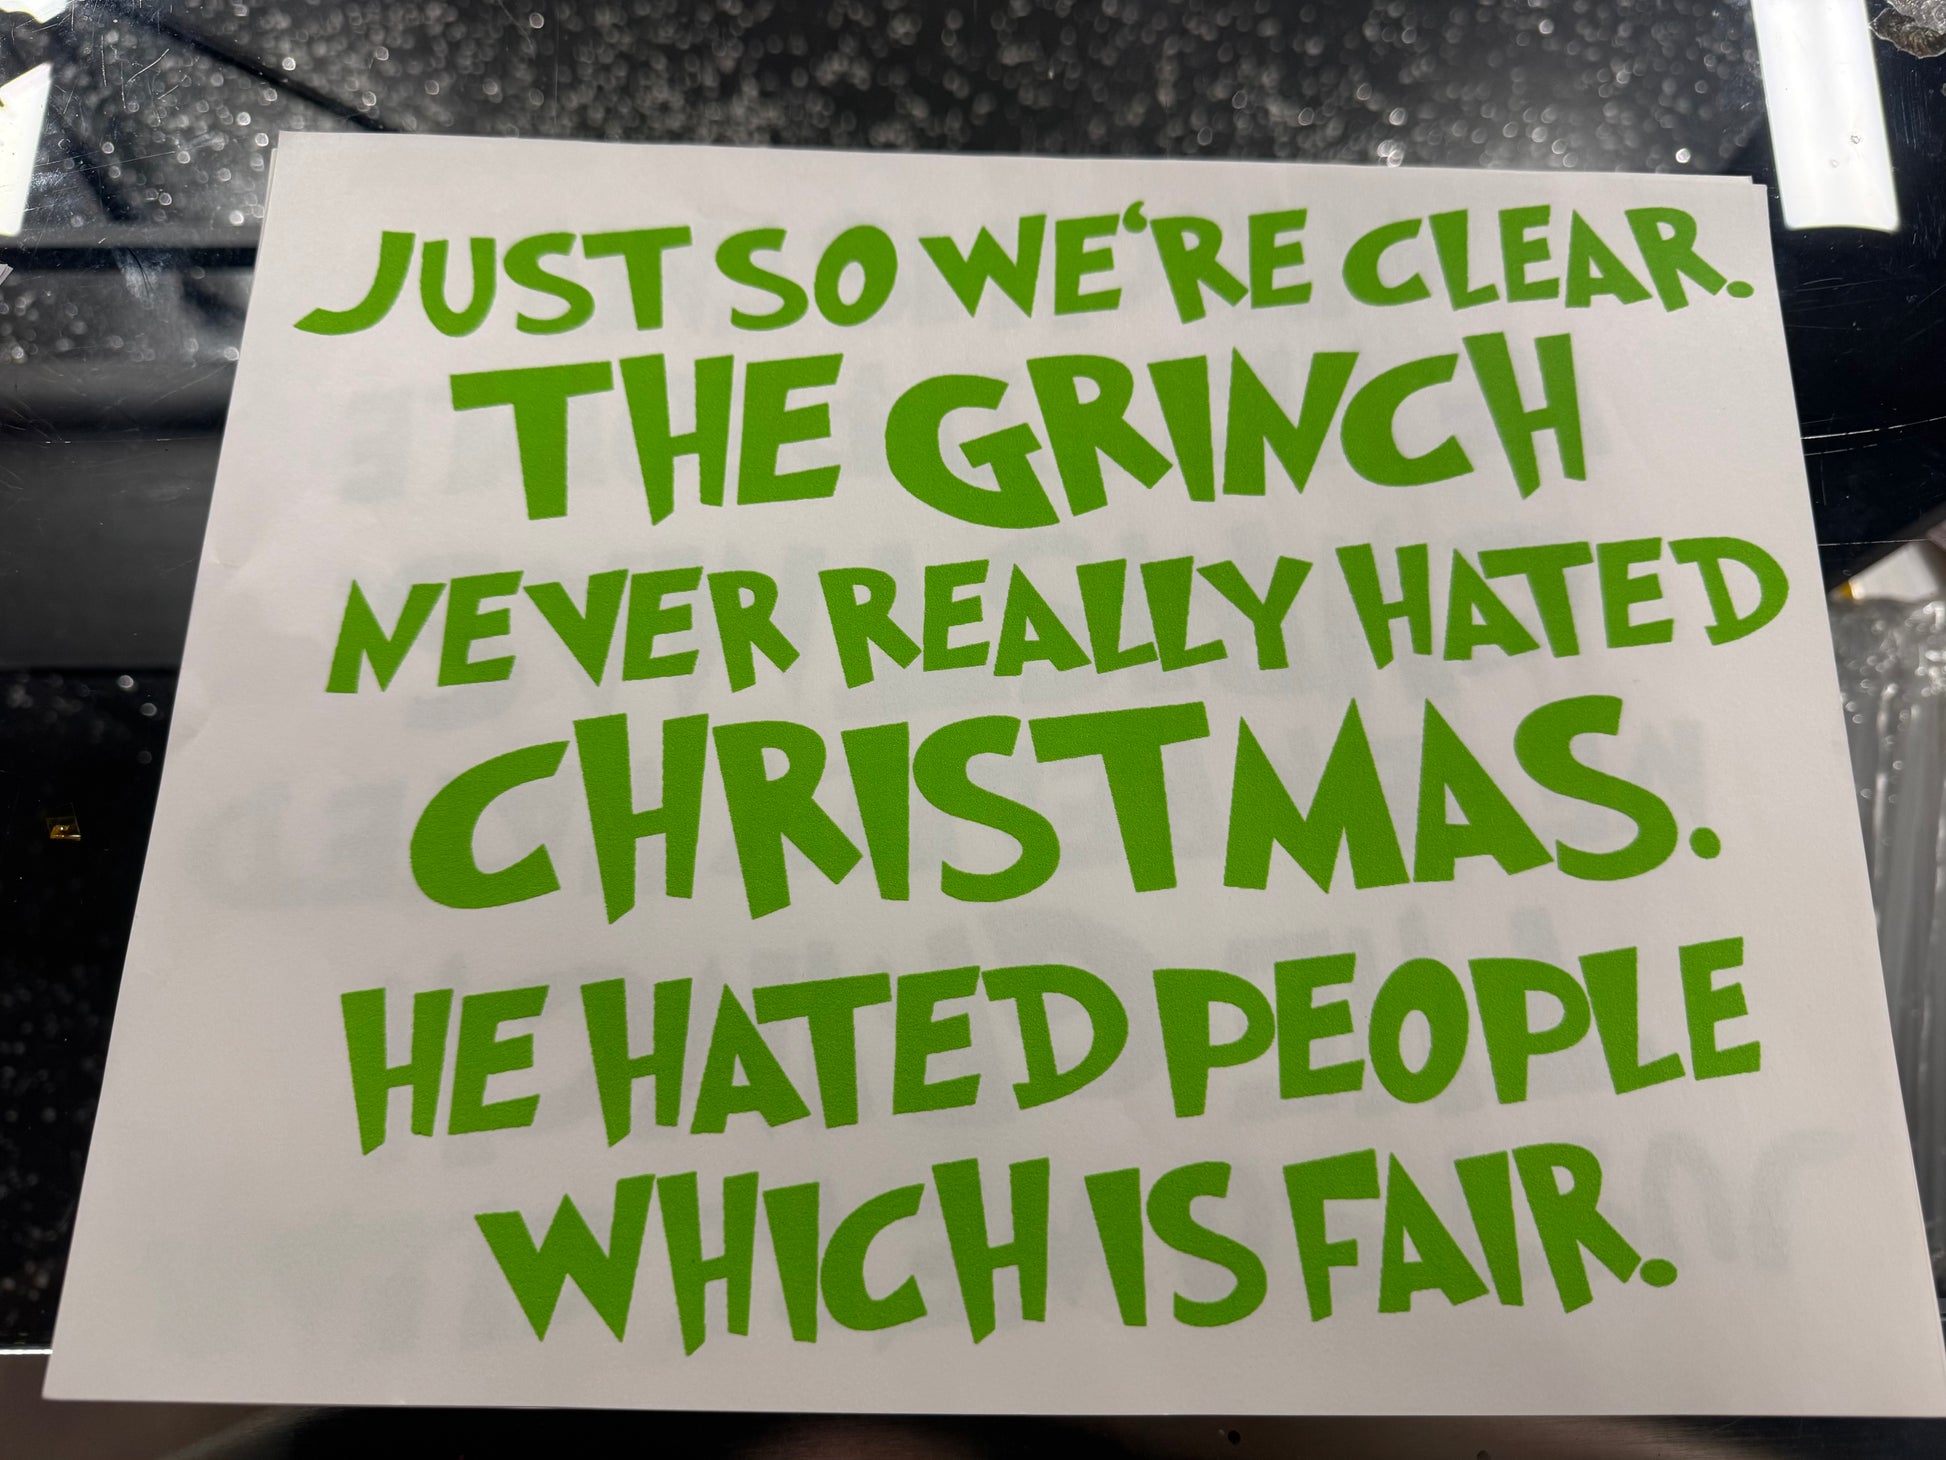 JUST SO WE‘RE CLEAR.
THE GRINCH
NEVER REALLY HATED
CHRISTMAS.
HE HATED PEOPLE
WHICH IS FAIR.